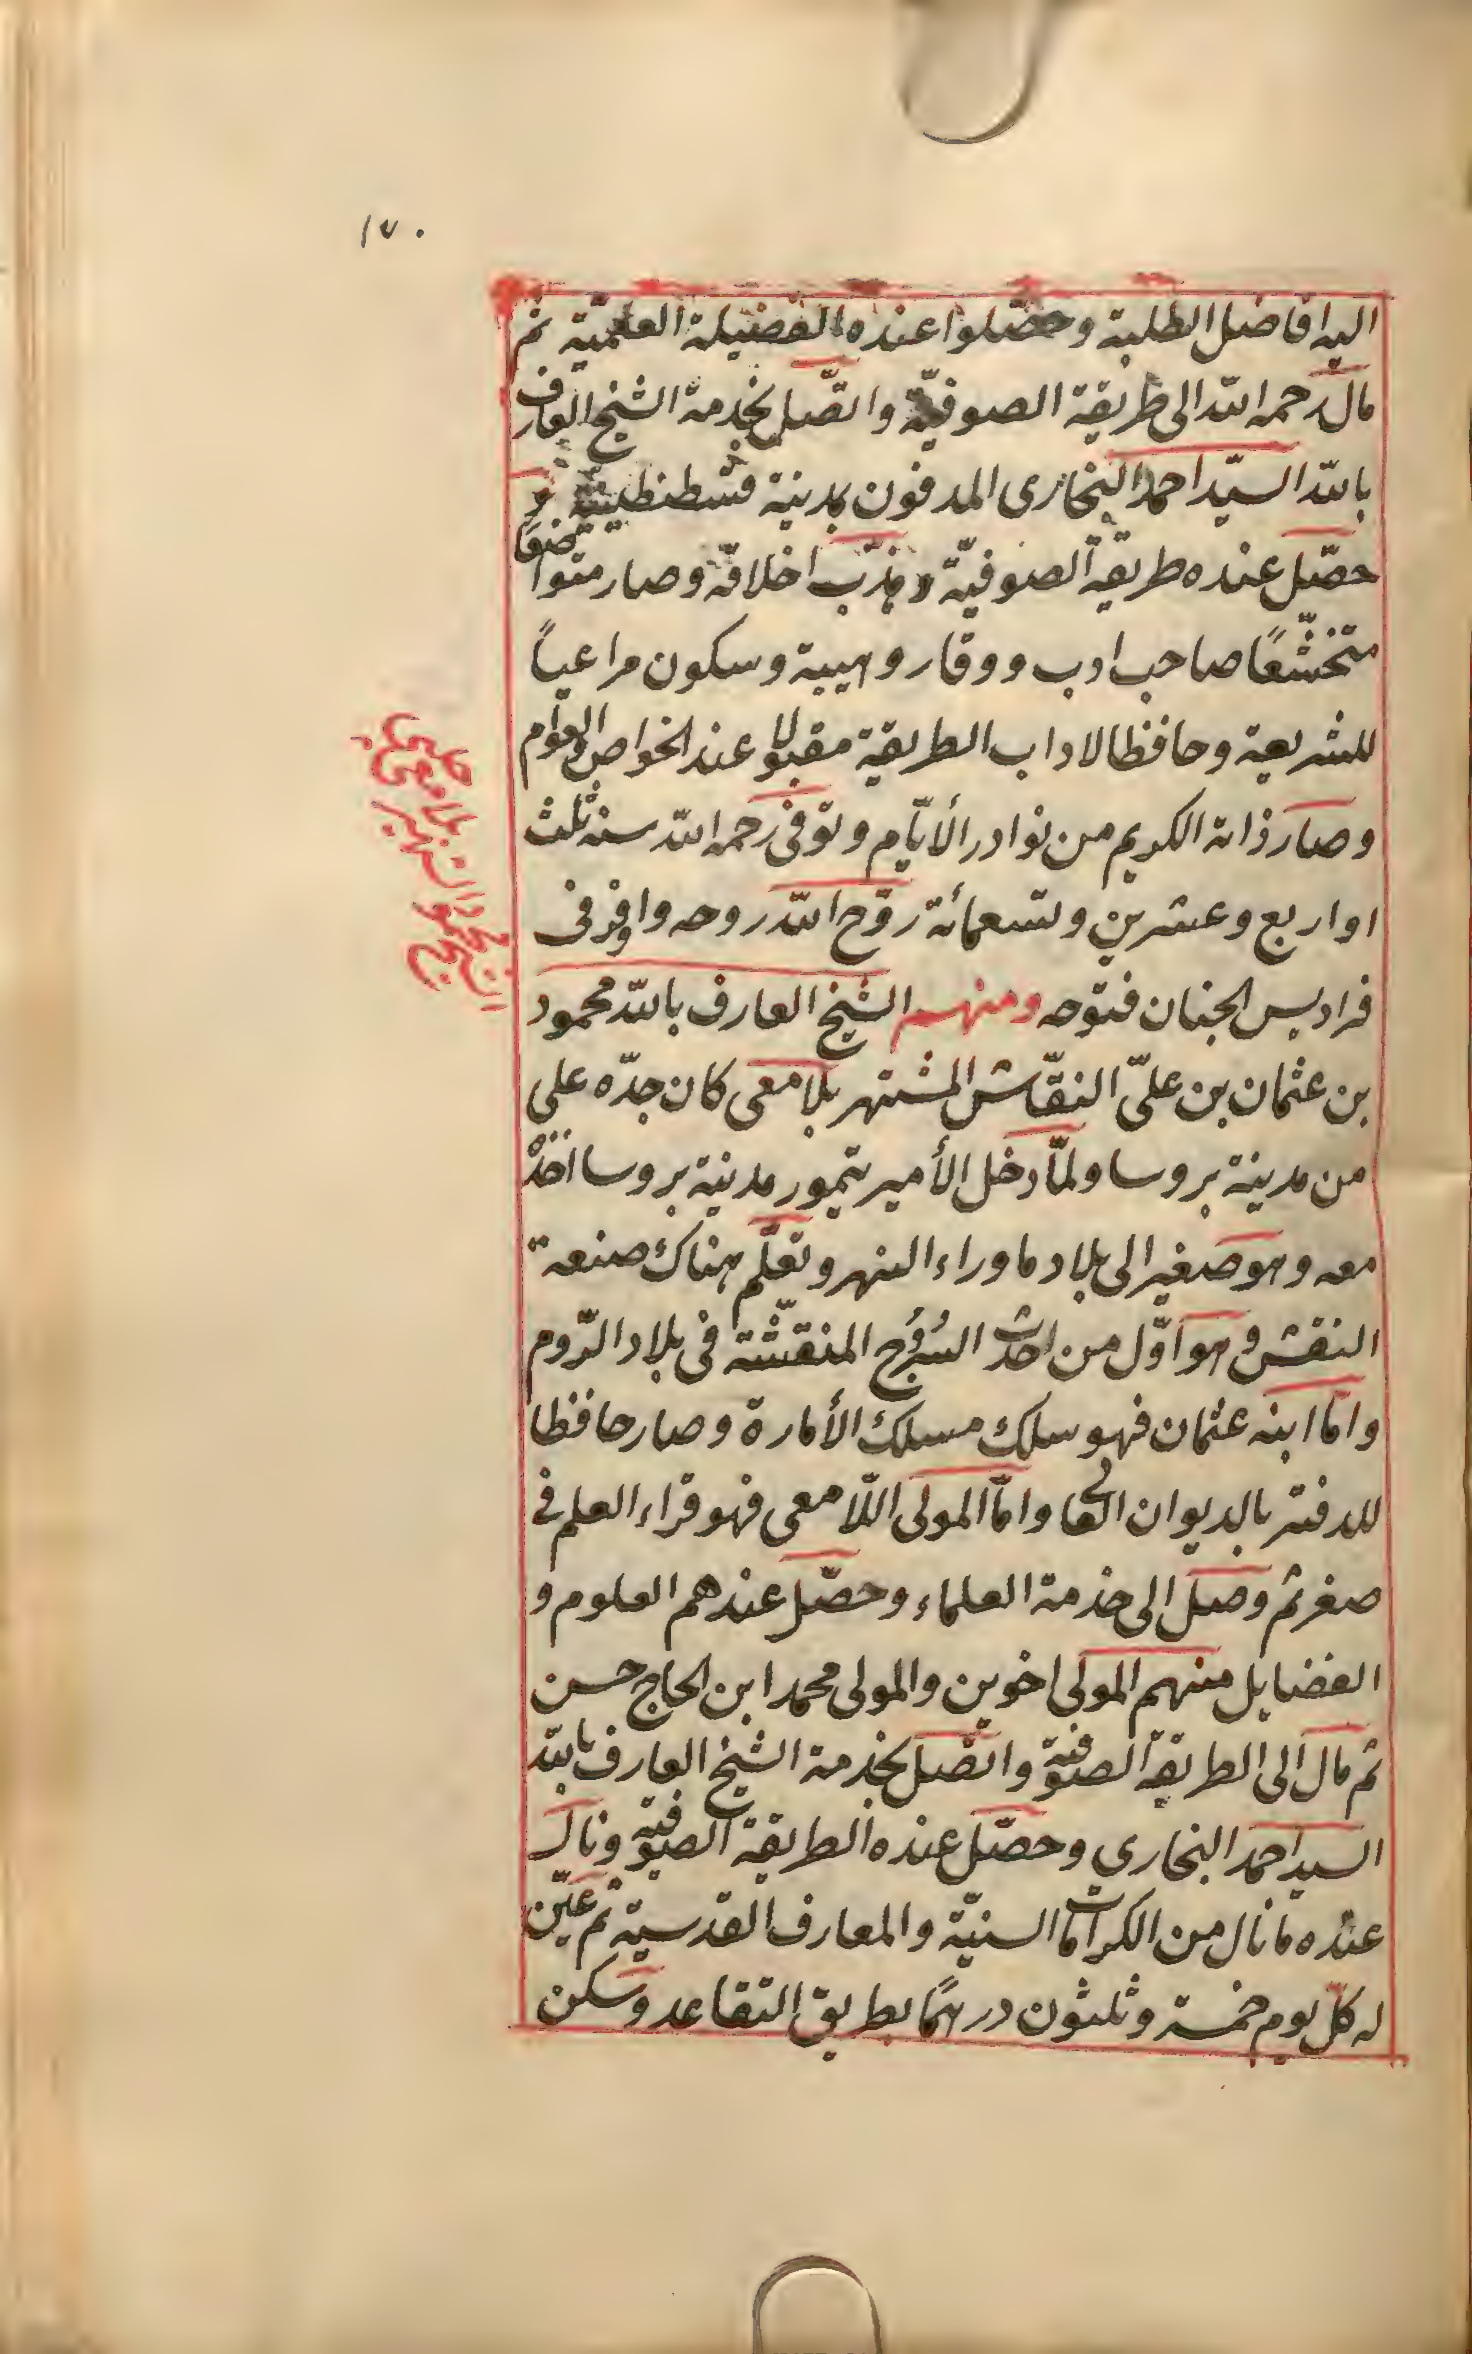 ١٧٠
اليه افاضل الطلبة وحصّلوا عنده الفضيلة العلميّة ثم
مال رحمه الله الى طريقة الصوفيّة واتّصل بخدمة الشيخ العارف
بالله السيّد احمد البخارى المدفون بمدينة قسطنطينيّة و
حصّل عنده طريقة الصوفيّة وهذّب اخلاقه وصار متواضعًا
متخشّعًا صاحب ادب ووقار وهيبة وسكون مراعياً
للشريعة وحافظا لاداب الطريقة مقبولا عند الخواص والعوام
وصار ذاته الكريم من نوادر الأيّام وتوفى رحمه الله سنه ثلث
او اربع وعشرين وتسعمائة روّح الله روحه واوفر فى
فراديس الجنان فتوحه ومنهم الشيخ العارف بالله محمود
بن عثمان بن علىّ النقّاش المشتهر بلامعى كان جدّه على
من مدينة بروسا ولمّا دخل الأمير تيمور مدينة بروسا اخذه
معه وهو صغير الى بلاد ماوراء النهر وتعلّم هناك صنعة
النقش وهو اوّل من احدث السُرُوج المنقّشة فى بلاد الرّوم
وامّا ابنه عثمان فهو سلك مسلك الأمارة وصار حافظا
للدفتر بالديوان العالى وامّا المولى اللّامعى فهو قراء العلم فى
صغر ثم وصل الى خدمة العلماء وحصّل عندهم العلوم و
الفضايل منهم المولى اخوين والمولى محمد ابن الحاج حسن
ثم مال الى الطريقة الصوفية واتّصل بخدمة الشيخ العارف بالله
السيد احمد البخاري وحصّل عنده الطريقة الصوفية ونال
عنده ما نال من الكرامات السنيّة والمعارف القدسية ثم عيّن
له كلّ يوم خمسة وثلثون درهمًا بطريق التقاعد وسكن
الشيخ محمود
الشهير
بلامعى
چلبى